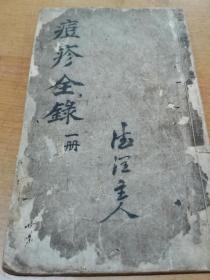 痘疹全錄
一册
主人